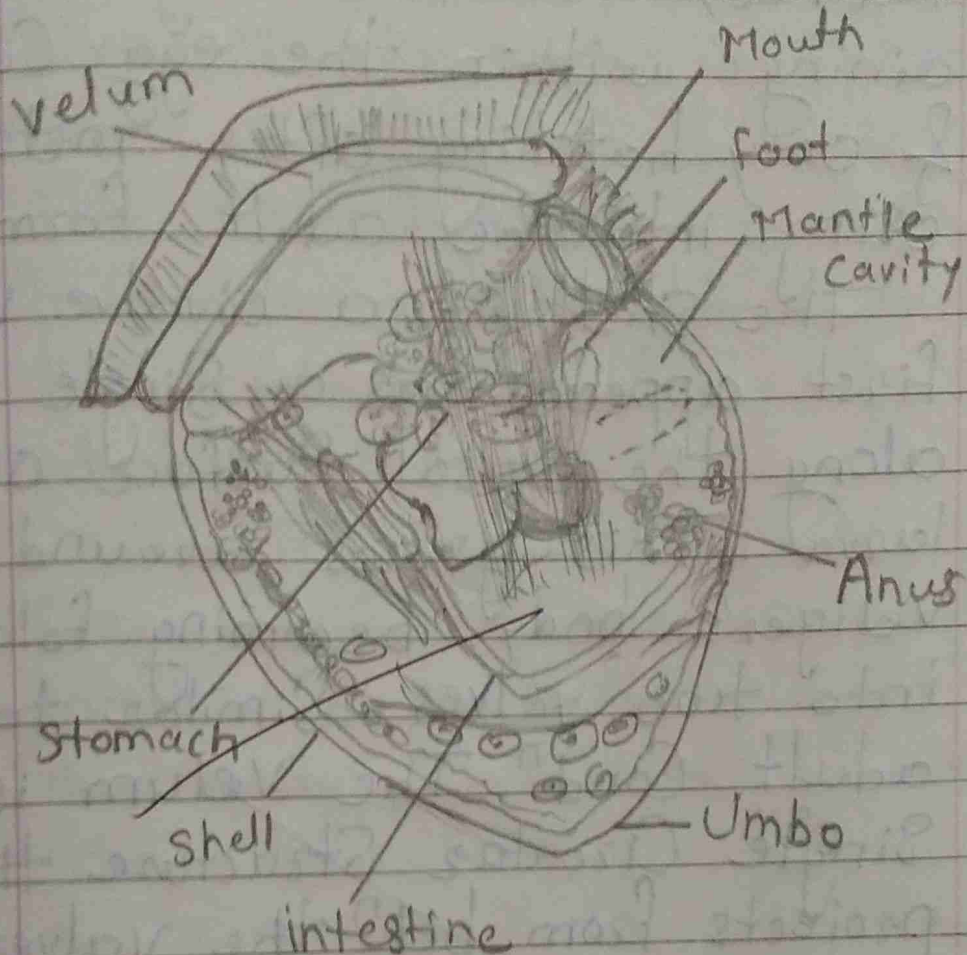 Mouth
velum
foot
Mantle
cavity
Anus
Stomach
Shell
Umbo
intestine